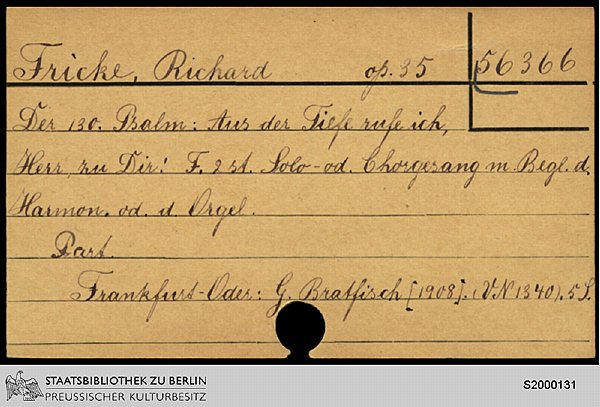 Fricke, Richard op. 35 56366
Der 130. Psalm: Aus der Tiefe rufe ich,
Herr, zu Dir! F. 2 st. Solo- od. Chorgesang m. Begl. d.
Harmon. od. d. Orgel.
Part.
Frankfurt-Oder: G. Bratfisch [1908]. (VN 1340). 5 S.
STAATSBIBLIOTHEK ZU BERLIN
PREUSSISCHER KULTURBESITZ
S2000131